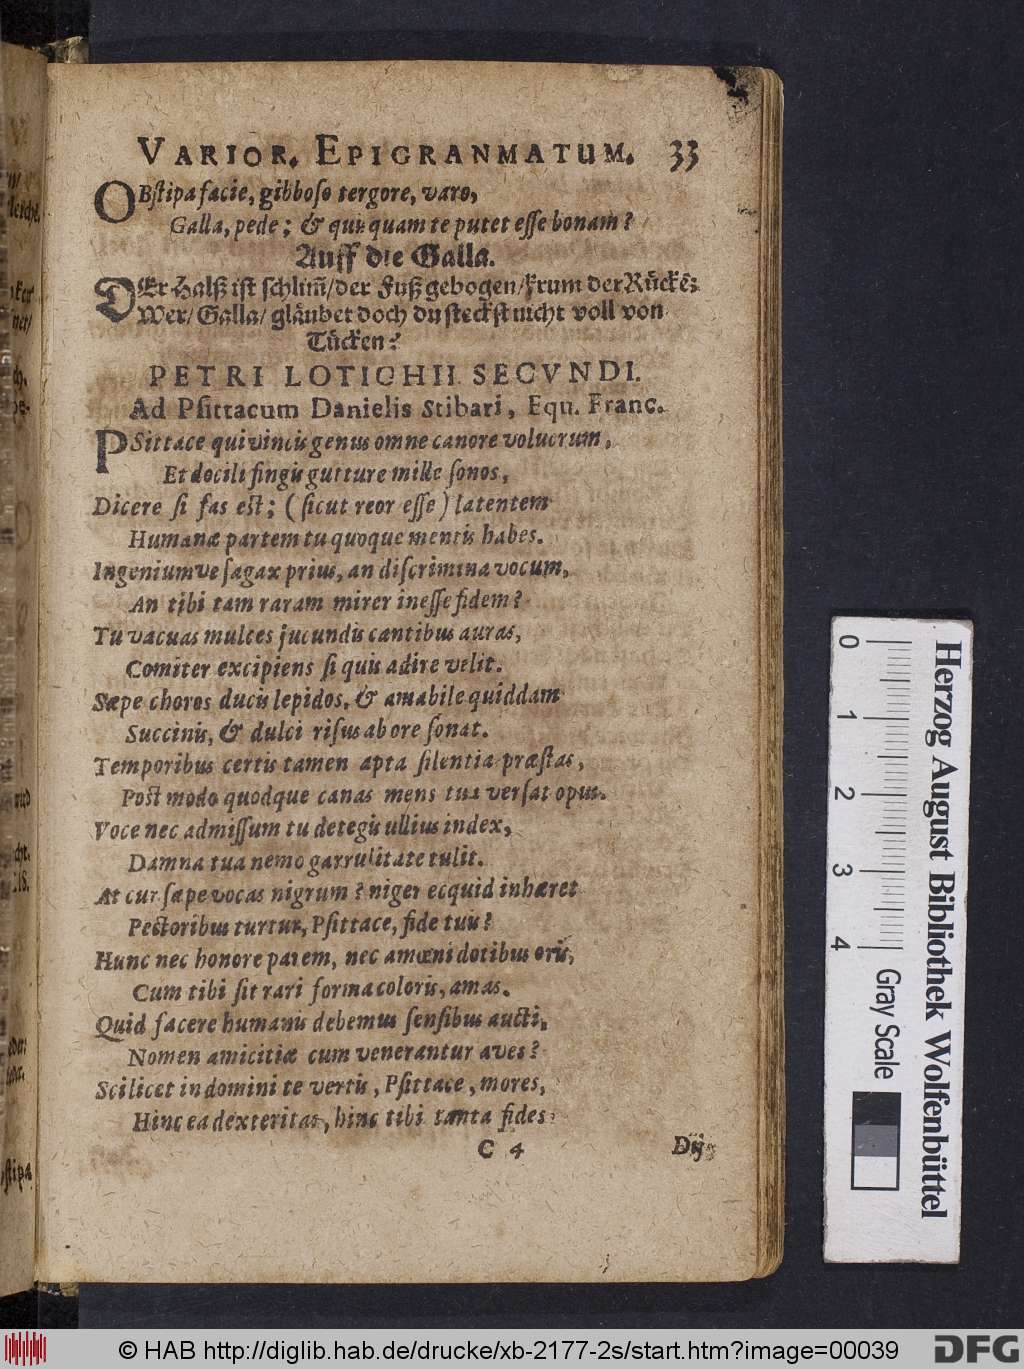 VARIOR. EPIGRANMATUM. 33
OBſtipa facie, gibboſo tergore, varo,
Galla, pede; & quiquam te putet eſſe bonam?
Auff die Galla.
DEr Halß ist ſchlim̃/der Fuß gebogen/krum der Rückẽ;
Wer/ Galla/ gläubet doch du steckst nicht voll von
Tücken?
PETRI LOTICHII SECVNDI.
Ad Pſittacum Danielis Stibari, Equ. Franc.
PSittace qui vincis genus omne canore volucrum,
Et docili fingis gutture mille ſonos,
Dicere ſi fas eſt; (ſicut reor eſſe) latentem
Humanæ partem tu quoque mentis habes.
Ingeniumve ſagax prius, an diſcrimina vocum,
An tibi tam raram mirer ineſſe fidem?
Tu vacuas mulces jucundis cantibus auras,
Comiter excipiens ſi quis adire velit.
Sæpe choros ducis lepidos, & amabile quiddam
Succinis, & dulci riſus ab ore ſonat.
Temporibus certis tamen apta ſilentia præſtas,
Poſt modo quodque canas mens tua verſat opus.
Voce nec admiſſum tu detegis ullius index,
Damna tua nemo garrulitate tulit.
At cur ſæpe vocas nigrum? niger ecquid inhæret
Pectoribus turtur, Pſittace, fide tuis?
Hunc nec honore parem, nec amœni dotibus oris,
Cum tibi ſit rari forma coloris, amas.
Quid facere humanis debemus ſenſibus aucti,
Nomen amicitiæ cum venerantur aves?
Scilicet in domini te vertis, Pſittace, mores,
Hinc ea dexteritas, hinc tibi tanta fides.
C 4 Dij
0 1 2 3 4
Herzog August Bibliothek Wolfenbüttel
Gray Scale
© HAB http://diglib.hab.de/drucke/xb-2177-2s/start.htm?image=00039
DFG